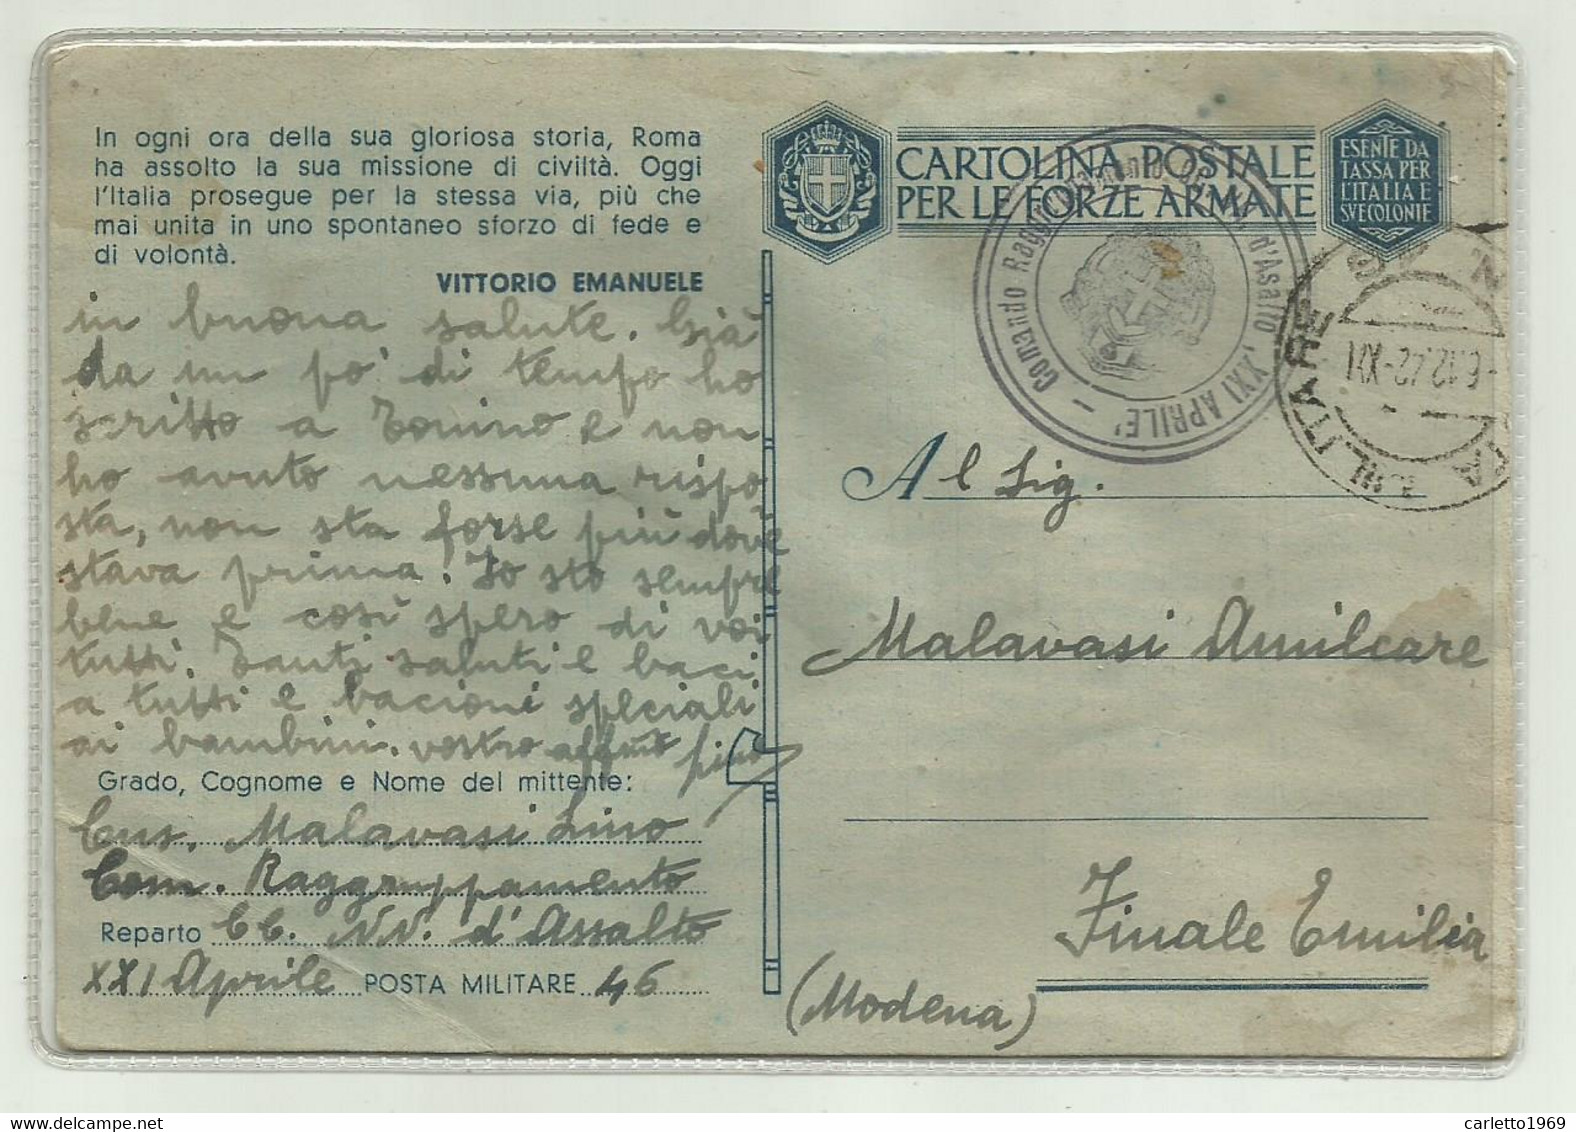 In ogni ora della sua gloriosa storia, Roma
ha assolto la sua missione di civiltà. Oggi
l'Italia prosegue per la stessa via, più che
mai unita in uno spontaneo sforzo di fede e
di volontà.
VITTORIO EMANUELE
in buona salute. Già
da un po' di tempo ho
scritto a Tonino e non
ho avuto nessuna rispo
sta, non sta forse più dove
stava prima. Io sto sempre
bene e così spero di voi
tutti. Tanti saluti e baci
a tutti e bacioni speciali
ai bambini. vostro affmo
Grado, Cognome e Nome del mittente:
Malavasi Lino
Com. Raggruppamento
Reparto CC. NN. d'Assalto
XXI Aprile POSTA MILITARE 46
CARTOLINA POSTALE
PER LE FORZE ARMATE
ESENTE DA
TASSA PER
L'ITALIA E
SUE COLONIE
Comando Raggr. d'Assalto "XXI APRILE"
MILITARE
6.12.42-XXI
Al Sig.
Malavasi Amilcare
Finale Emilia
(Modena)
carletto1969